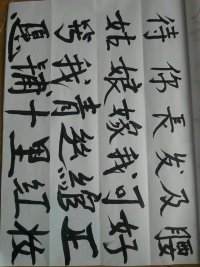 待你長发及腰
姑娘嫁我可好
等我青丝绾正
愿铺十里红妆